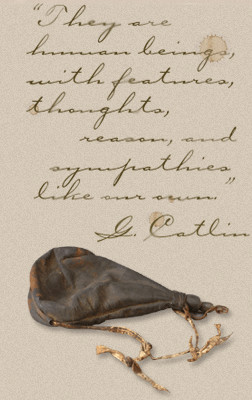 “They are
human beings,
with features,
thoughts,
reason, and
sympathies
like our own.”
G. Catlin